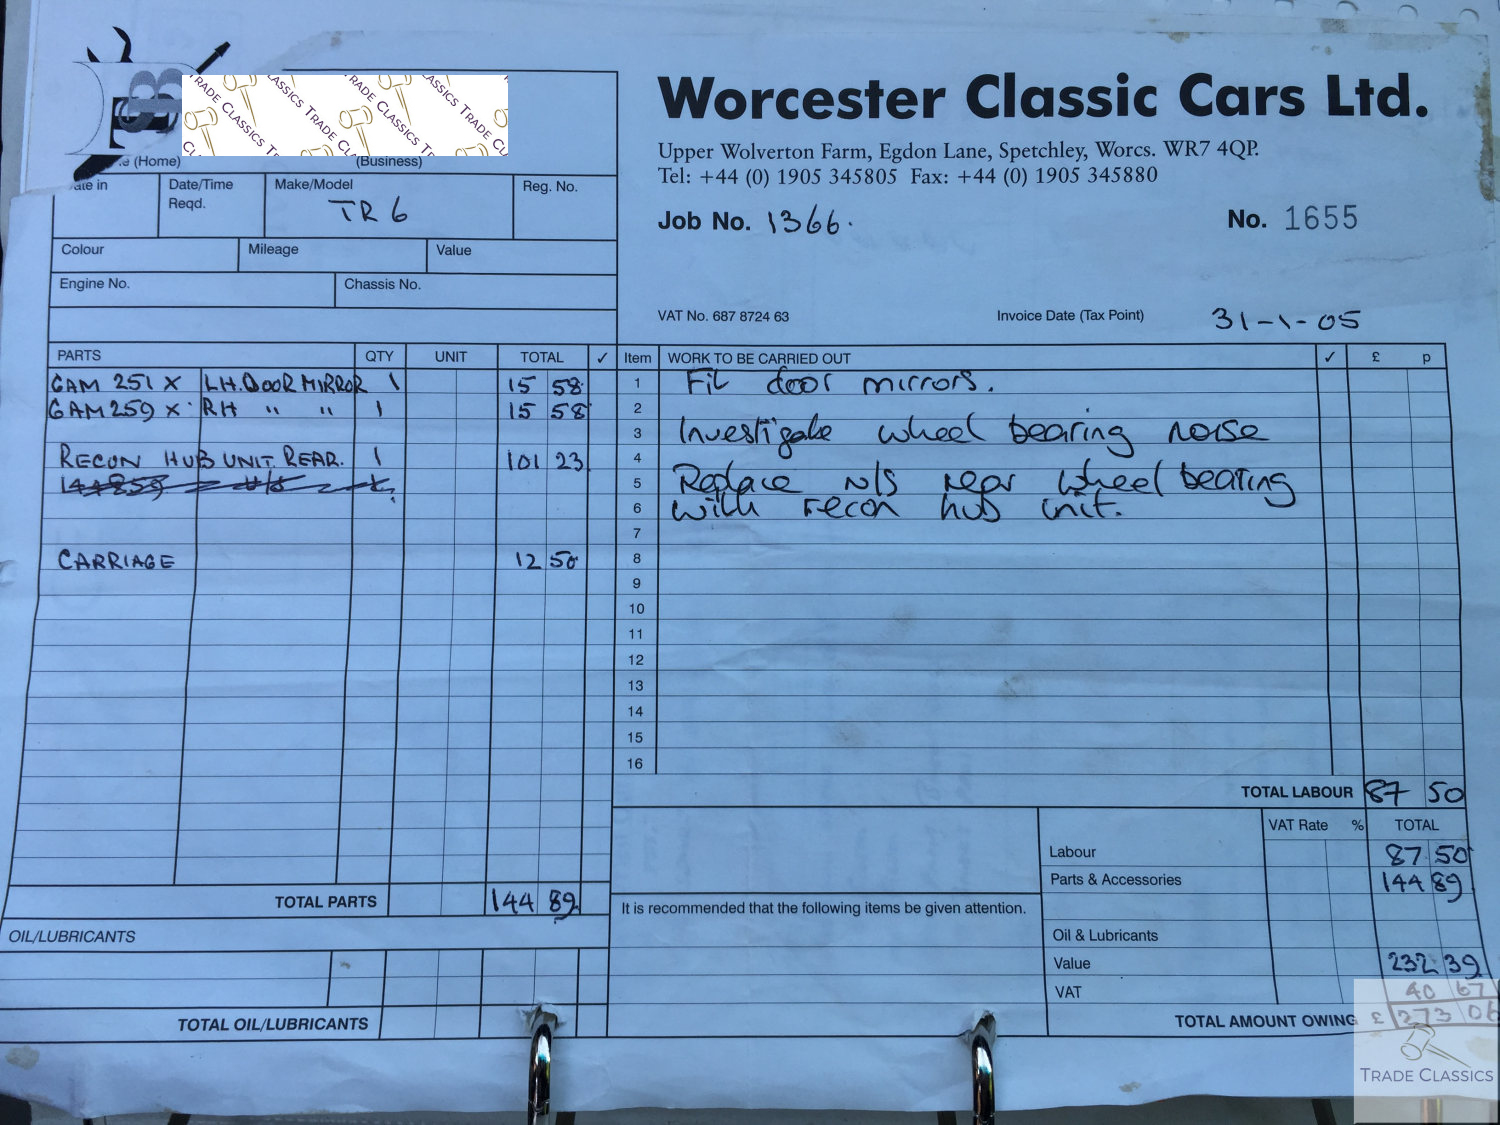 Worcester Classic Cars Ltd.
Upper Wolverton Farm, Egdon Lane, Spetchley, Worcs. WR7 4QP.
Tel: +44 (0) 1905 345805 Fax: +44 (0) 1905 345880
Job No. 1366. No. 1655
VAT No. 687 8724 63 Invoice Date (Tax Point) 31-1-05
TRADE CLASSICS TRADE CLASSICS
(Home) (Business)
Date/Time Reqd. Make/Model TR6 Reg. No.
Colour Mileage Value
Engine No. Chassis No.
PARTS QTY UNIT TOTAL ✓
GAM 251 X LH. DOOR MIRROR 1 15 58
GAM 259 X RH " " 1 15 58
RECON HUB UNIT REAR. 1 101 23
CARRIAGE 12 50
TOTAL PARTS 144 89
OIL/LUBRICANTS
TOTAL OIL/LUBRICANTS
Item WORK TO BE CARRIED OUT ✓ £ p
1 Fit door mirrors.
2
3 Investigate wheel bearing noise
4
5 Replace n/s rear wheel bearing
6 with recon hub unit.
7
8
9
10
11
12
13
14
15
16
TOTAL LABOUR 87 50
VAT Rate % TOTAL
Labour 87 50
Parts & Accessories 144 89
It is recommended that the following items be given attention.
Oil & Lubricants
Value 232 39
VAT 40 67
TOTAL AMOUNT OWING £ 273 06
TRADE CLASSICS